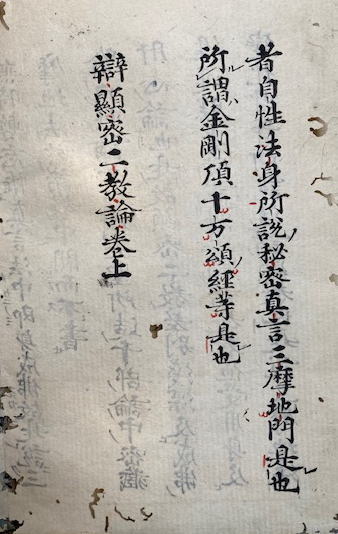 者自性法身所説秘密真言三摩地門是也
所謂金剛頂十万頌経等是也
辯顯密二教論卷上